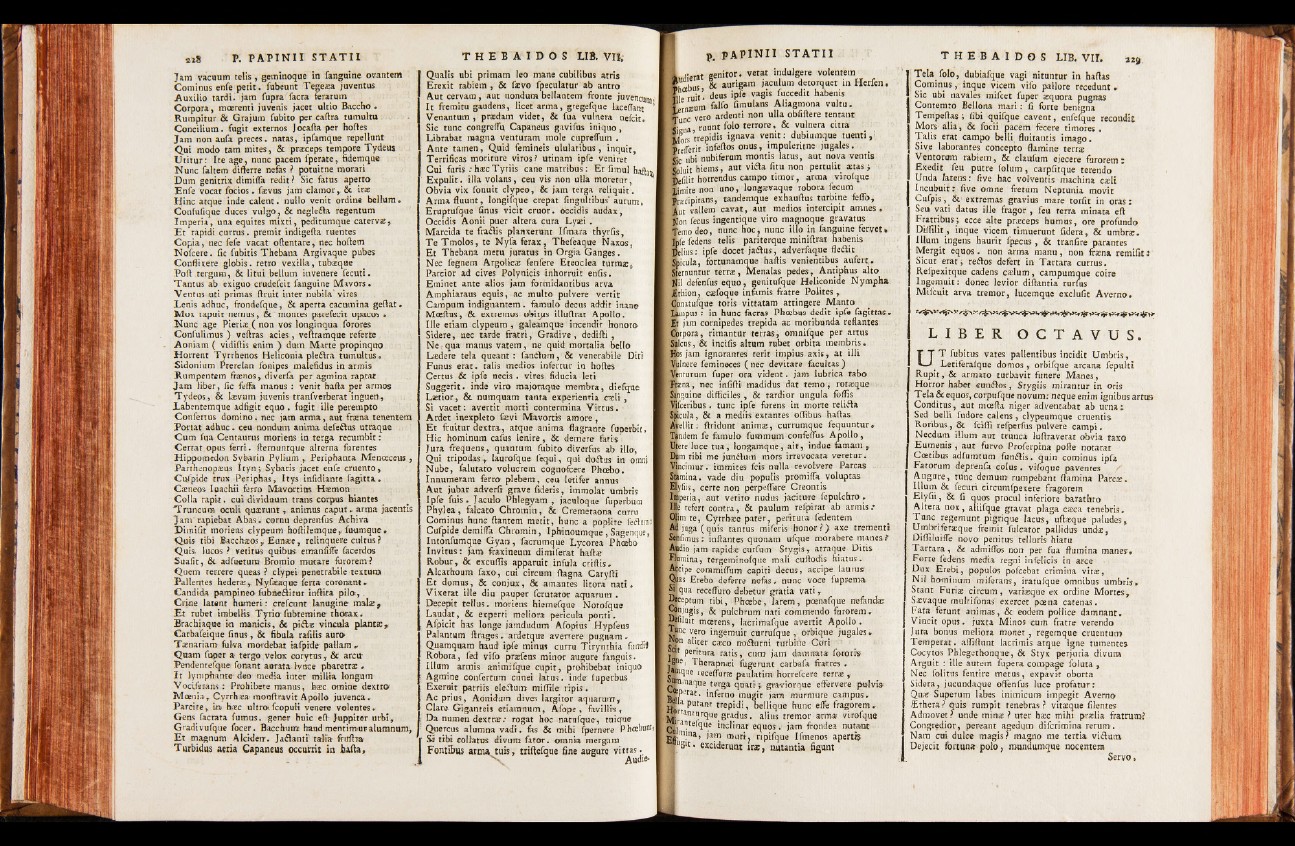 228 P. PAPINII STATII
Jam vacuum telis, geminoque in sanguine ovantem
Cominus ense petit. subeunt Tegeæa juventus
Auxilio tardi. jam supra sacra ferarum
Corpora, mœrenti juvenis jacet ultio Baccho.
Rumpitur & Grajum subito per castra tumultu
Concilium. fugit externos Jocasta per hostes
Jam non ausa preces. natas, ipsamque repellunt
Qui modo tam mites, & præceps tempore Tydeus
Utitur: Ite age, nunc pacem sperate, fidemque
Nunc saltem differre nefas? potuitne morari
Dum genitrix dimissa redit? Sic fatus aperto
Ense vocat socios. sævus jam clamor, & iræ
Hinc atque inde calent. nullo venit ordine bellum.
Confusique duces vulgo, & neglecta regentum
Imperia, una equites mixti, peditumque catervæ,
Et rapidi currus. premit indigesta ruentes
Copia, nec sese vacat ostentare, nec hostem
Noscere. sic subitis Thebana Argivaque pubes
Conflixere globis. retro vexilla, tubæque
Post tergum, & litui bellum invenere secuti.
Tantus ab exiguo crudescit sanguine Mavors.
Ventus uti primas struit inter nubila vires
Lenis adhuc, frondesque, & aperta cacumina gestat.
Mox rapuit nemus, & montes patefecit opacos.
Nunc age Pieriæ (non vos longinqua sorores
Consulimus) vestras acies, vestramque referte
Aoniam (vidistis enim) dum Marte propinquo
Horrent Tyrrhenos Heliconia plectra tumultus.
Sidonium Prerelan sonipes malefidus in armis
Rumpentem frænos, diversa per agmina raptat
Jam liber, sic fessa manus: venit hasta per armos
Tydeos, & lævum juvenis transverberat inguen,
Labentemque adfigit equo. fugit ille perempto
Consertus domino, nec jam arma, aut fræna tenentem
Portat adhuc. ceu nondum anima defectus utraque
Cum sua Centaurus moriens in terga recumbit:
Certat opus ferri. sternuntque alterna furentes
Hippomedon Sybarin Pylium, Periphanta Menœceus,
Parthenopæus Ityn; Sybaris jacet ense cruento,
Cuspide trux Periphas, Itys insidiante sagitta.
Cæneos Inachii ferro Mavortius Hæmon
Colla rapit. cui dividuum trans corpus hiantes
Truncum oculi quærunt, animus caput. arma jacentis
Jam rapiebat Abas. cornu deprensus Achiva
Dimisit moriens clypeum hostilemque, suumque.
Quis tibi Bacchæos, Eunæe, relinquere cultus?
Quis lucos? vetitus quibus emansisse sacerdos
Suasit, & adsuetum Bromio mutare furorem?
Quem terrere queas? clypei penetrabile textum
Pallentes hederæ, Nysæaque serta coronant.
Candida pampineo subnectitur instita pilo,
Crine latent humeri: crescunt lanugine malæ,
Et rubet imbellis Tyrio subtemine thorax.
Brachiaque in manicis, & pictæ vincula plantæ,
Carbaseique sinus, & fibula rasilis auro
Tænariam fulva mordebat iaspide pallam.
Quam super a tergo velox corytus, & arcu
Pendentesque sonant aurata lynce pharetræ.
It lymphante deo media inter millia longum
Vociferans: Prohibete manus, hæc omine dextro
Mœnia, Cyrrhæa monstravit Apollo juvenca.
Parcite, in hæc ultro scopuli venere volentes.
Gens sacrata sumus. gener huic est Juppiter urbi,
Gradivusque socer. Bacchum haud mentimur alumnum,
Et magnum Alciden. Jactanti talia frustra
Turbidus aeria Capaneus occurrit in hasta,
THEBAIDOS LIB. VII.
Qualis ubi primam leo mane cubilibus atris
Erexit rabiem, & sævo speculatur ab antro
Aut cervam, aut nondum bellantem fronte juvencum;
It fremitu gaudens, licet arma, gregesque lacessant
Venantum, prædam videt, & sua vulnera nescit.
Sic tunc congressu Capaneus gavisus iniquo,
Librabat magna venturam mole cupressum.
Ante tamen, Quid femineis ululatibus, inquit,
Terrificas moriture viros? utinam ipse veniret
Cui furis: hæc Tyriis cane matribus: Et simul hastam
Expulit. illa volans, ceu vis non ulla moretur,
Obvia vix sonuit clypeo, & jam terga reliquit.
Arma fluunt, longisque crepat singultibus aurum,
Eruptusque sinus vicit cruor. occidis audax,
Occidis Aonii puer altera cura Lyæi.
Marcida te fractis planxerunt Ismara thyrsis,
Te Tmolos, te Nysa ferax, Theseaque Naxos,
Et Thebana metu juratus in Orgia Ganges.
Nec segnem Argolicæ sensere Eteoclea turmæ,
Parcior ad cives Polynicis inhorruit ensis.
Eminet ante alios jam formidantibus arva
Amphiaraus equis, ac multo pulvere vertit
Campum indignantem. famulo decus addit inane
Mœstus, & extremos obitus illustrat Apollo.
Ille etiam clypeum, galeamque incendit honoro
Sidere, nec tarde fratri, Gradive, dedisti,
Ne qua manus vatem, ne quid mortalia bello
Ledere tela queant: sanctum, & venerabile Diti
Funus erat. talis medios infertur in hostes
Certus & ipse necis. vires fiducia leti
Suggerit. inde viro majoraque membra, diesque
Lætior, & numquam tanta experientia cæli,
Si vacet: avertit morti contermina Virtus.
Ardet inexpleto sævi Mavortis amore,
Et fruitur dextra, atque anima flagrante superbit.
Hic hominum casus lenire, & demere fatis
Jura frequens, quantum subito diversus ab illo,
Qui tripodas, laurosque sequi, qui doctus in omni
Nube, salutato volucrem cognoscere Phœbo.
Innumeram ferro plebem, ceu letifer annus
Aut jubar adversi grave sideris, immolat umbris
Ipse suis. Jaculo Phlegyam, jaculoque superbum
Phylea, falcato Chromin, & Cremetaona curru
Cominus hunc stantem metit, hunc a poplite sectum:
Cuspide demissa Chromin, Iphinoumque, Sagenque,
Intonsumque Gyan, sacrumque Lycorea Phœbo
Invitus: jam fraxineum dimiserat hastæ
Robur, & excussis apparuit infula cristis.
Alcathoum saxo, cui circum stagna Carysti
Et domus, & conjux, & amantes litora nati.
Vixerat ille diu pauper scrutator aquarum.
Decepit tellus. moriens hiemesque Notosque
Laudat, & experti meliora pericula ponti.
Aspicit has longe jamdudum Asopius Hypseus
Palantum strages. ardetque avertere pugnam.
Quamquam haud ipse minus curru Tirynthia fundit
Robora, sed viso præsens minor augure sanguis.
Illum armis animisque cupit, prohibebat iniquo
Agmine consertum cunei latus. inde superbus
Exeruit patriis electum missile ripis.
Ac prius, Aonidum dives largitor aquarum,
Clare Giganteis etiamnum, Asope, favillis,
Da numen dextræ: rogat hoc natusque, tuique
Quercus alumna vadi. fas & mihi spernere Phœbum,
Si tibi collatus divum sator. omnia mergam
Fontibus arma tuis, tristesque sine augure vittas.
Audie-
P. PAPINII STATII
Audierat genitor. vetat indulgere volentem
Phœbus, & aurigam jaculum detorquet in Hersen.
Ille ruit. deus ipse vagis succedit habenis
Lernæum falso simulans Aliagmona vultu.
Tunc vero ardenti non ulla obsistere tentant
Signa, ruunt solo terrore, & vulnera citra
Mors trepidis ignava venit: dubiumque tuenti,
Presserit infestos onus, impuleritne jugales.
Sic ubi nubiferum montis latus, aut nova ventis
Soluit hiems, aut victa situ non pertulit ætas;
Desilit horrendus campo timor, arma virosque
Limite non uno, longævaque robora secum
Præcipitans, tandemque exhaustus turbine fesso,
Aut vallem cavat, aut medios intercipit amnes.
Non secus ingentique viro magnoque gravatus
Temo deo, nunc hoc, nunc illo in sanguine fervet.
Ipse sedens telis pariterque ministrat habenis
Delius: ipse docet jactus, adversaque flectit
Spicula, fortunamque hastis venientibus aufert.
Sternuntur terræ, Menalas pedes, Antiphus alto
Nil defensus equo, genitusque Heliconide Nympha
Æthion, cæsoque infamis fratre Polites,
Conatusque toris vittatam attingere Manto
Lampus: in hunc sacras Phœbus dedit ipse sagittas.
Et jam cornipedes trepida ac moribunda reflantes
Corpora, rimantur terras, omnisque per artus
Sulcus, & incisis altum rubet orbita membris.
Hos jam ignorantes terit impius axis, at illi
Vulnere semineces (nec devitare facultas)
Venturum super ora vident. jam lubrica tabo
Fræna, nec insisti madidus dat temo, rotæque
Sanguine difficiles, & tardior ungula fossis
Visceribus. tunc ipse furens in morte relicta
Spicula, & a mediis extantes ossibus hastas
Avellit: stridunt animæ, currumque sequuntur.
Tandem se famulo summum confessus Apollo,
Utere luce tua, longamque, ait, indue famam,
Dum tibi me junctum mors irrevocata veretur.
Vincimur. immites scis nulla revolvere Parcas
Stamina. vade diu populis promissa voluptas
Elysiis, certe non perpessure Creontis
Imperia, aut vetito nudus jaciture sepulchro.
Ille refert contra, & paulum respirat ab armis:
Olim te, Cyrrhæe pater, peritura sedentem
Ad juga (quis tantus miseris honor?) axe trementi
Sensimus: instantes quonam usque morabere manes?
Audio jam rapidæ cursum Stygis, atraque Ditis
Flumina, tergeminosque mali custodis hiatus.
Accipe commissum capiti decus, accipe laurus
Quas Erebo deferre nefas. nunc voce suprema
Si qua recessuro debetur gratia vati,
Deceptum tibi, Phœbe, larem, pœnasque nefandæ
Conjugis, & pulchrum nati commendo furorem.
Desiluit mœrens, lacrimasque avertit Apollo.
Tunc vero ingemuit currusque, orbique jugales.
Non aliter cæco nocturni turbine Cori
Scit peritura ratis, cum jam damnata sororis
Igne, Therapnæi fugerunt carbasa fratres.
Jamque recessuræ paulatim horrescere terræ,
Summaque terga quati; graviorque effervere pulvis
Cœperat. inferno mugit jam murmure campus.
Bella putant trepidi, bellique hunc esse fragorem.
Hortanturque gradus. alius tremor arma virosque
Mirantesque inclinat equos. jam frondea nutant
Culmina, jam muri, ripisque Ismenos apertis
Effugit. exciderunt iræ, nutantia figunt
THEBAIDOS LIB. VII. 229
Tela solo, dubiasque vagi nituntur in hastas
Cominus, inque vicem viso pallore recedunt.
Sic ubi navales miscet super æquora pugnas
Contemto Bellona mari: si forte benigna
Tempestas; sibi quisque cavent, ensesque recondit
Mors alia, & socii pacem fecere timores.
Talis erat campo belli fluitantis imago.
Sive laborantes concepto flamine terræ
Ventorum rabiem, & clausum ejecere furorem:
Exedit seu putre solum, carpsitque terendo
Unda latens: sive hac volventis machina cæli
Incubuit: sive omne fretum Neptunia movit
Cuspis, & extremas gravius mare torsit in oras:
Seu vati datus ille fragor, seu terra minata est
Fratribus; ecce alte præceps humus, ore profundo
Dissilit, inque vicem timuerunt sidera, & umbræ.
Illum ingens haurit specus, & transire parantes
Mergit equos. non arma manu, non fræna remisit:
Sicut erat, rectos defert in Tartara currus.
Respexitque cadens cælum, campumque coire
Ingemuit: donec levior distantia rursus
Miscuit arva tremor, lucemque exclusit Averno.
LIBER OCTAVUS.
UT subitus vates pallentibus incidit Umbris,
Letiferasque domos, orbisque arcana sepulti
Rupit, & armato turbavit funere Manes,
Horror habet cunctos, Stygiis mirantur in oris
Tela & equos, corpusque novum: neque enim ignibus artus
Conditus, aut mœsta niger adventabat ab urna:
Sed belli sudore calens, clypeumque cruentis
Roribus, & scissi respersus pulvere campi.
Necdum illum aut trunca lustraverat obvia taxo
Eumenis, aut furvo Proserpina poste notarat
Cœtibus adsumtum functis. quin cominus ipsa
Fatorum deprensa colus. visoque paventes
Augure, tunc demum rumpebant stamina Parcæ.
Illum & securi circumspexere fragorem
Elysii, & si quos procul inferiore barathro
Altera nox, aliisque gravat plaga cæca tenebris.
Tunc regemunt pigrique lacus, ustæque paludes,
Umbriferæque fremit sulcator pallidus undæ,
Dissiluisse novo penitus telluris hiatu
Tartara, & admissos non per sua flumina manes.
Forte sedens media regni infelicis in arce
Dux Erebi, populos poscebat crimina vitæ,
Nil hominum miserans, iratusque omnibus umbris.
Stant Furiæ circum, variæque ex ordine Mortes,
Sævaque multisonas exercet pœna catenas.
Fata ferunt animas, & eodem pollice damnant.
Vincit opus. juxta Minos cum fratre verendo
Jura bonus meliora monet, regemque cruentum
Temperat. assistunt lacrimis atque igne tumentes
Cocytos Phlegethonque, & Styx perjuria divum
Arguit: ille autem supera compage soluta,
Nec solitus sentire metus, expavit oborta
Sidera, jucundaque offensus luce profatur:
Quæ Superum labes inimicum impegit Averno
Æthera? quis rumpit tenebras? vitæque silentes
Admovet? unde minæ? uter hæc mihi prælia fratrum?
Congredior, pereant agedum discrimina rerum.
Nam cui dulce magis? magno me tertia victum
Dejecit fortuna polo, mundumque nocentem
Servo,